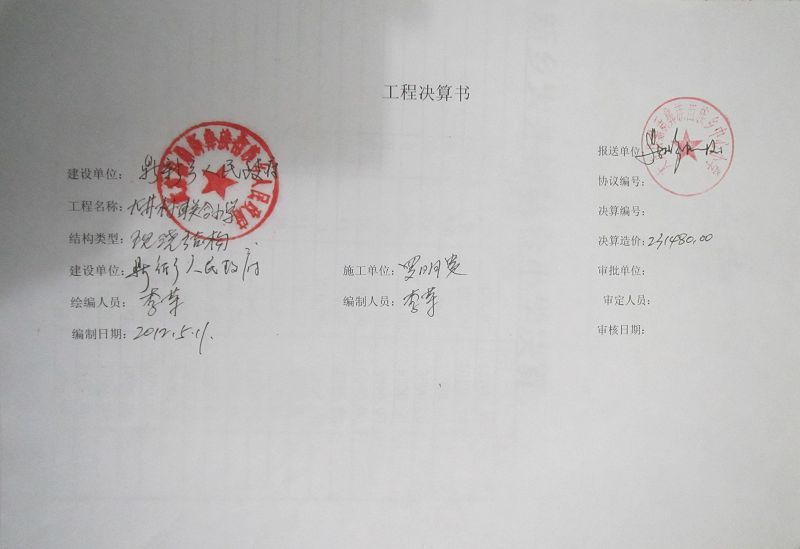 工程决算书
报送单位:
建设单位: 乡人民政府
协议编号:
工程名称: 村联合小学
决算编号:
结构类型: 现浇结构
决算造价: 231480.00
建设单位: 乡人民政府
施工单位: 罗明宽
审批单位:
绘编人员: 李苹
编制人员: 李苹
审定人员:
编制日期: 2012.5.11.
审核日期: